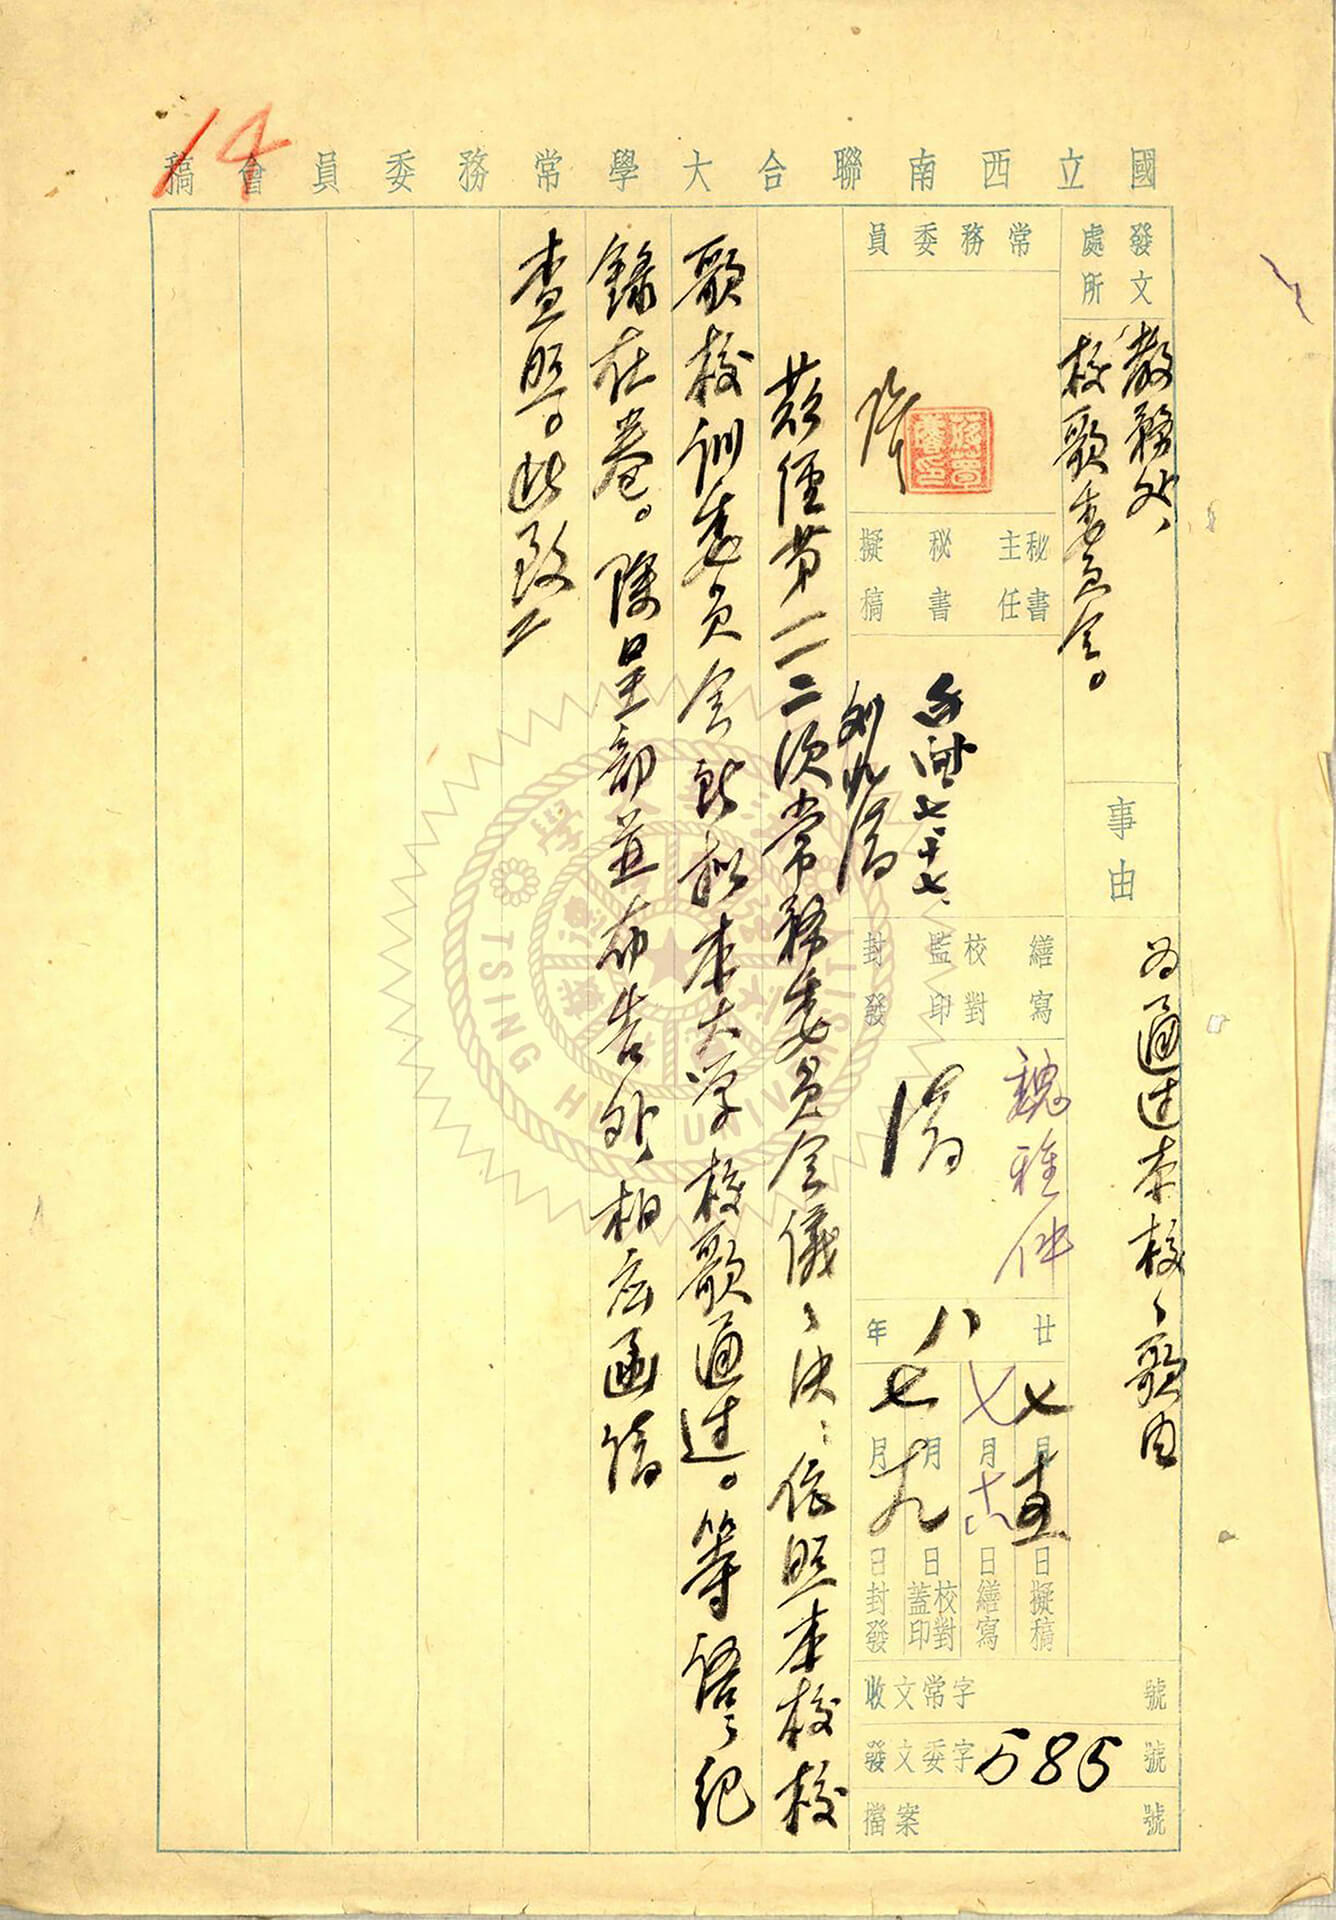 14
國立西南聯合大學常務委員會稿
發文處所
教務处
校歌委員会。
事由
為通过本校〻歌由
常務委員
秘書主任
秘書
擬稿
七、十七、
繕寫
校對
監印
封發
魏
廿八年
七月五日擬稿
七月十六日繕寫
月日校對蓋印
七月十九日封發
收文常字號
發文委字585號
檔案號
茲經第一一二次常務委員会議〻決：依照本校校
歌校訓委員会所拟本大学校歌通过。等語〻紀
錄在卷。除呈部並布告外，相应函請
查照。此致〻
TSING HUA UNIVERSITY